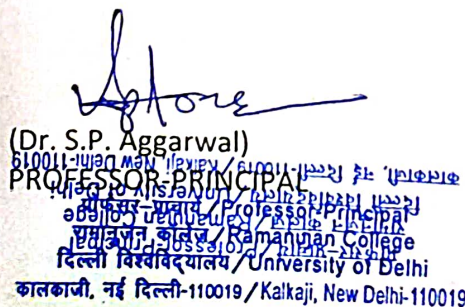 (Dr. S.P. Aggarwal)
PROFESSOR-PRINCIPAL
प्रोफेसर-प्राचार्य / Professor-Principal
रामानुजन कॉलेज / Ramanujan College
दिल्ली विश्वविद्यालय / University of Delhi
कालकाजी, नई दिल्ली-110019 / Kalkaji, New Delhi-110019